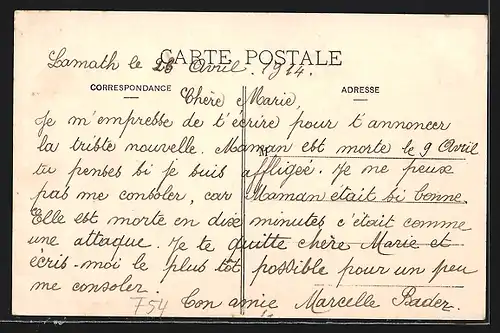 CARTE POSTALE
Lamath le 26 Avril. 1914.
CORRESPONDANCE
ADRESSE
Chère Marie,
Je m'empresse de t'écrire pour t'annoncer
la triste nouvelle. Maman est morte le 9 Avril
tu penses si je suis affligée. Je ne peux
pas me consoler, car Maman était si bonne.
Elle est morte en dix minutes c'était comme
une attaque. Je te quitte chère Marie et
écris-moi le plus tôt possible pour un peu
me consoler.
Ton amie Marcelle
F54